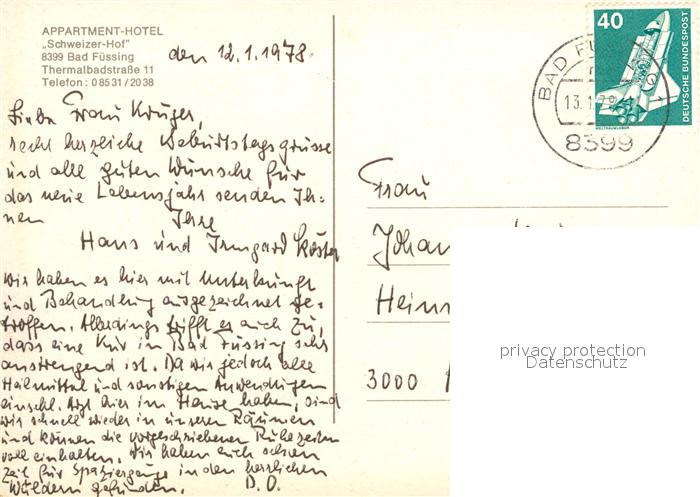 APPARTMENT-HOTEL
„Schweizer-Hof"
8399 Bad Füssing
Thermalbadstraße 11
Telefon: 08531/2038
den 12.1.1978.
Liebe Frau Krüger,
recht herzliche Geburtstagsgrüsse
und alle guten Wünsche für
das neue Lebensjahr senden Ih=
nen Ihre
Hans und Irmgard Köster
Wir haben es hier mit Unterkunft
und Behandlung ausgezeichnet ge-
troffen. Allerdings trifft es auch zu,
dass eine Kur in Bad Füssing sehr
anstrengend ist. Da wir jedoch alle
Heilmittel und sonstigen Anwendungen
einschl. Arzt hier im Hause haben, sind
wir schnell wieder in unseren Räumen
und können die vorgeschriebenen Ruhezeiten
voll einhalten. Wir haben auch schon
Zeit für Spaziergänge in den herrlichen
Wäldern gefunden. D. O.
40
DEUTSCHE BUNDESPOST
WELTRAUMLABOR
BAD FÜ
13.1.78
8399
Frau
Johan
Hein
3000
privacy protection
Datenschutz